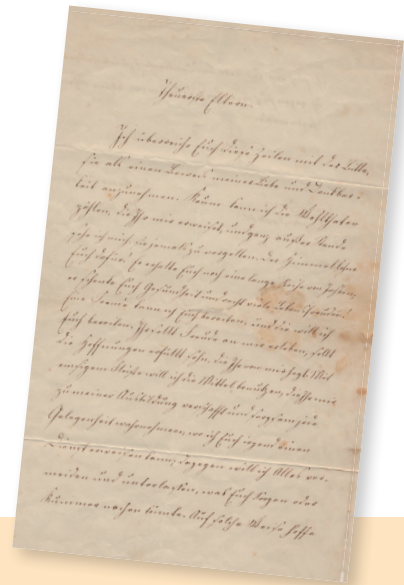 Theuerste Eltern
Ich überreiche Euch diese Zeilen mit der Bitte,
sie als einen Beweis meiner Liebe und Dankbar-
keit anzunehmen. Kaum kann ich die Wohlthaten
zählen, die Ihr mir erweiset, und ganz außer Stande
sehe ich mich sie jemals zu vergelten. Der Himmel lohne
Euch dafür! Er erhalte Euch noch eine lange Reihe von Jahren,
er schenke Euch Gesundheit und recht viele Lebensfreuden!
Eine Freude kann ich Euch bereiten, und die will ich
Euch bereiten, Ihr sollt Freude an mir erleben, sollt
die Hoffnungen erfüllt sehn, die Ihr von mir hegt. Mit
emsigem Fleiße will ich die Mittel benutzen, die Ihr mir
zu meiner Ausbildung verschafft und sorgsam jede
Gelegenheit wahrnehmen, wo ich Euch irgend einen
Dienst erweisen kann; dagegen will ich Alles ver-
meiden und unterlassen, was Euch Sorgen oder
Kummer machen könnte. Auf solche Weise hoffe